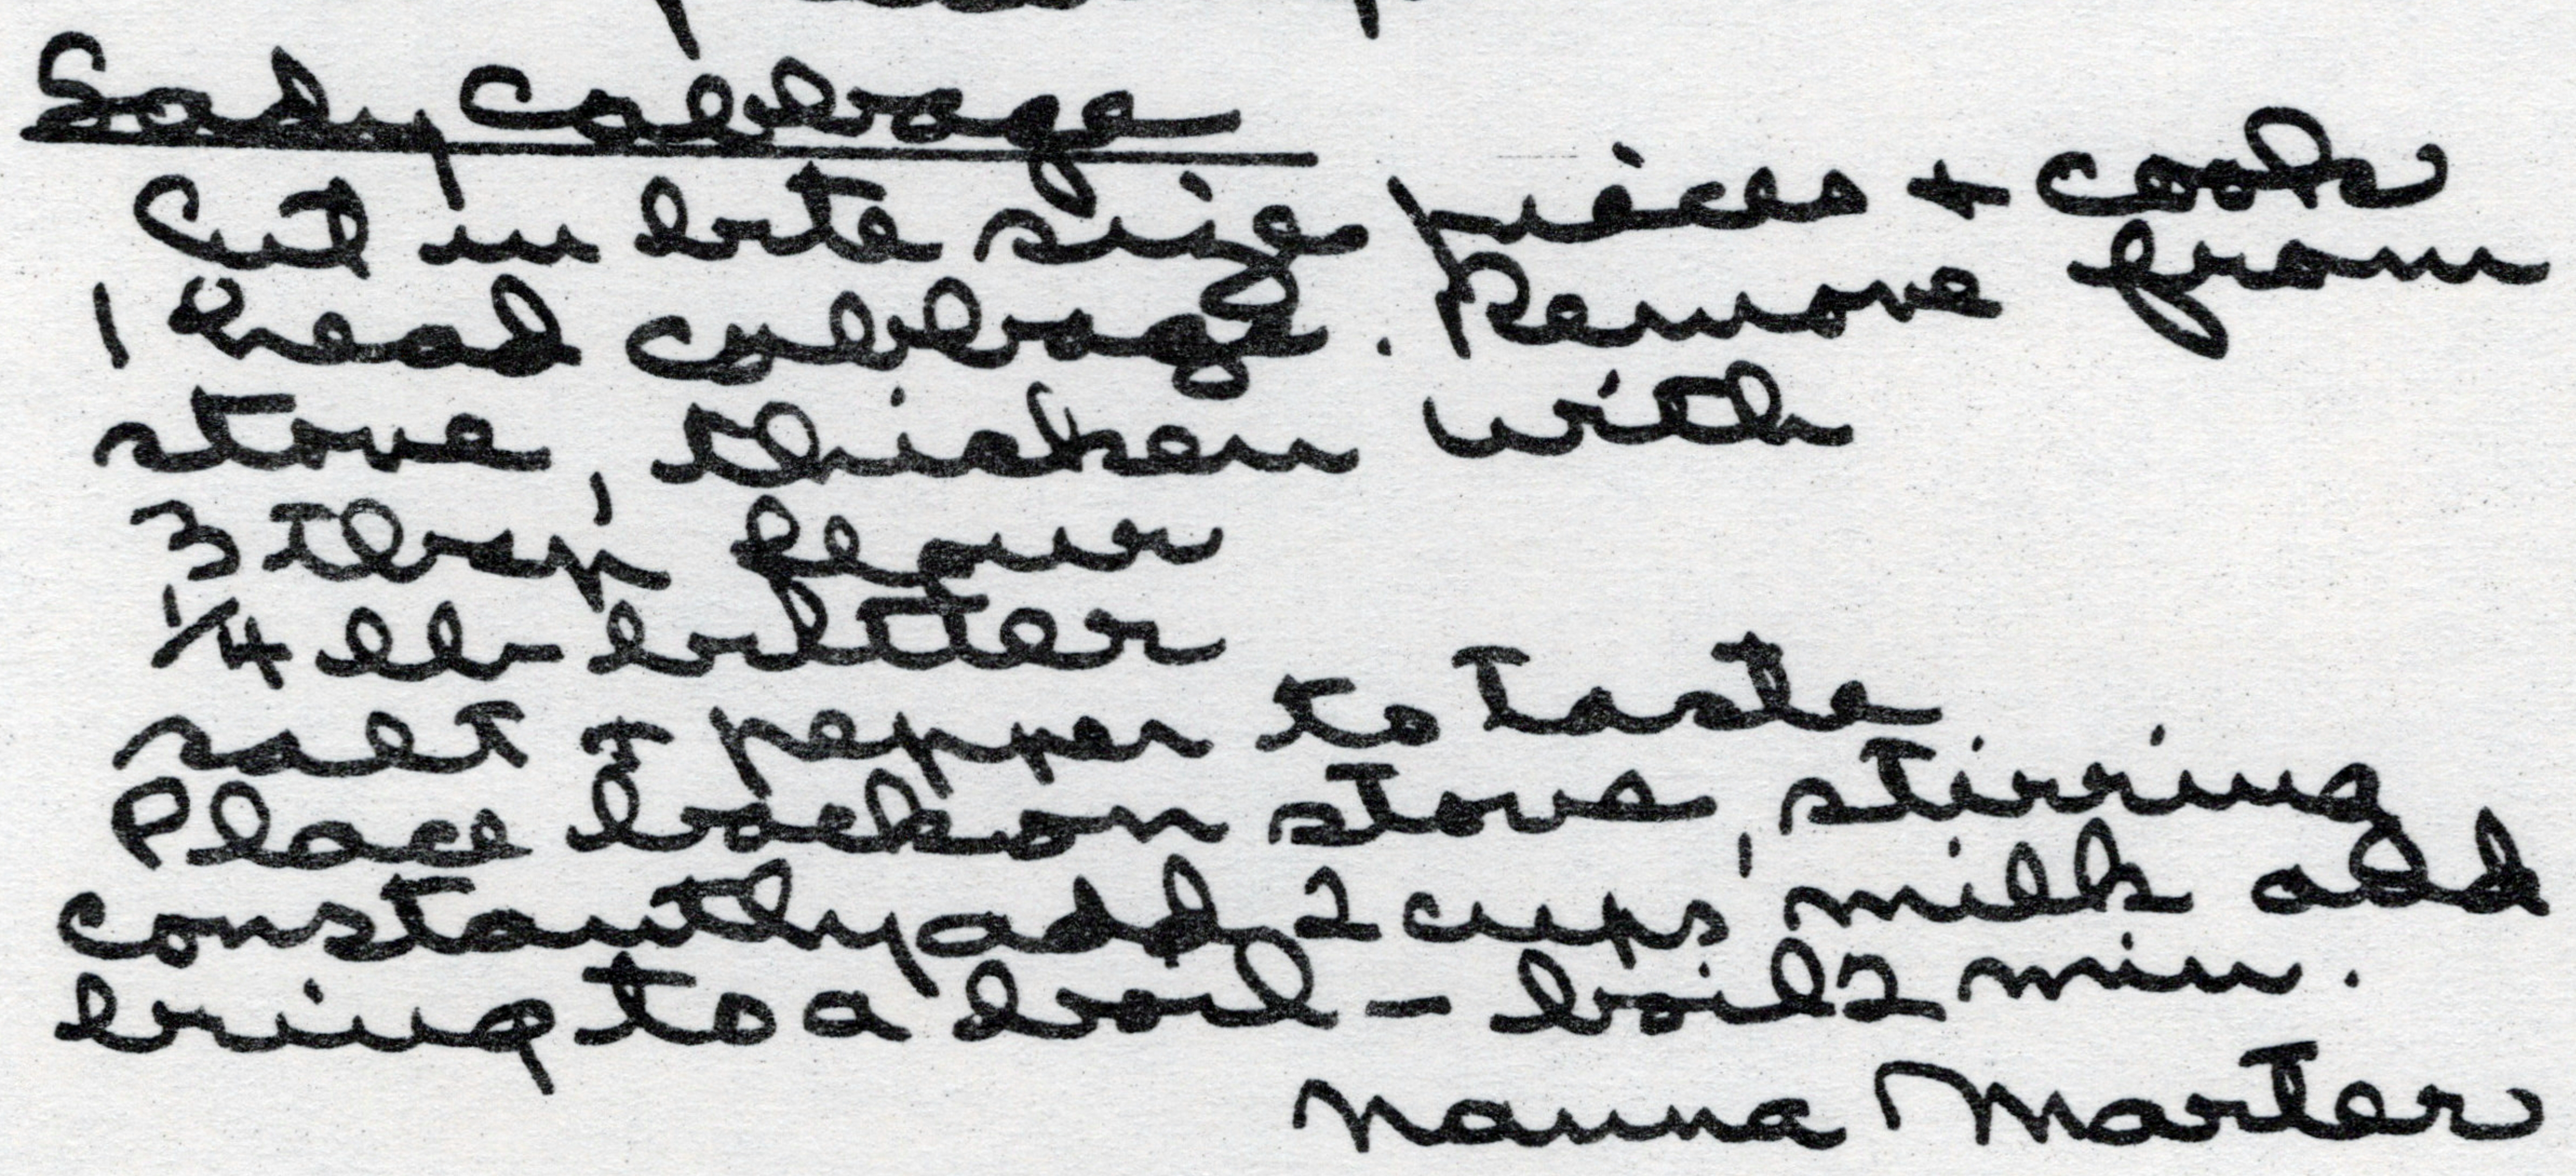 Sady Cabbage
Cut in bite size pieces + cook
1 head cabbage. Remove from
stove, thicken with
3 tbsp flour
1/4 lb butter
salt + pepper to taste
Place back on stove, stirring
constantly add 2 cups milk add
bring to a boil - boil 2 min.
Nanna Marter